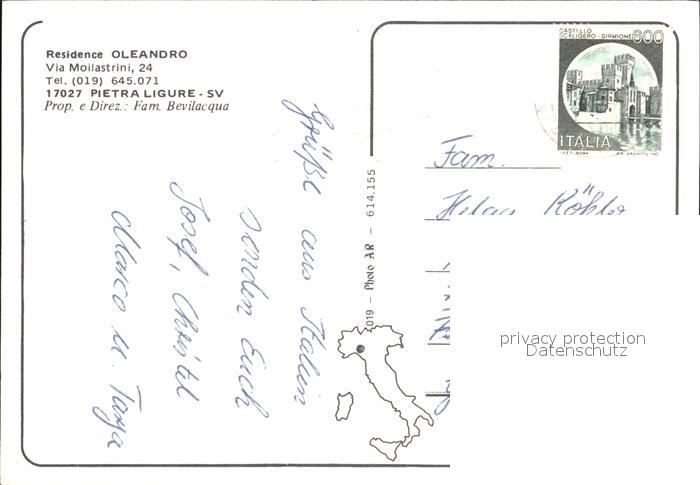 Residence OLEANDRO
Via Moilastrini, 24
Tel. (019) 645.071
17027 PIETRA LIGURE - SV
Prop. e Direz.: Fam. Bevilacqua
Grüße aus Italien
senden Euch
Josef, Christl
Marco u. Tanja
019 - Photo AR - 614.155
CASTELLO
SCALIGERO - SIRMIONE
600
ITALIA
Fam.
Köhler
privacy protection
Datenschutz